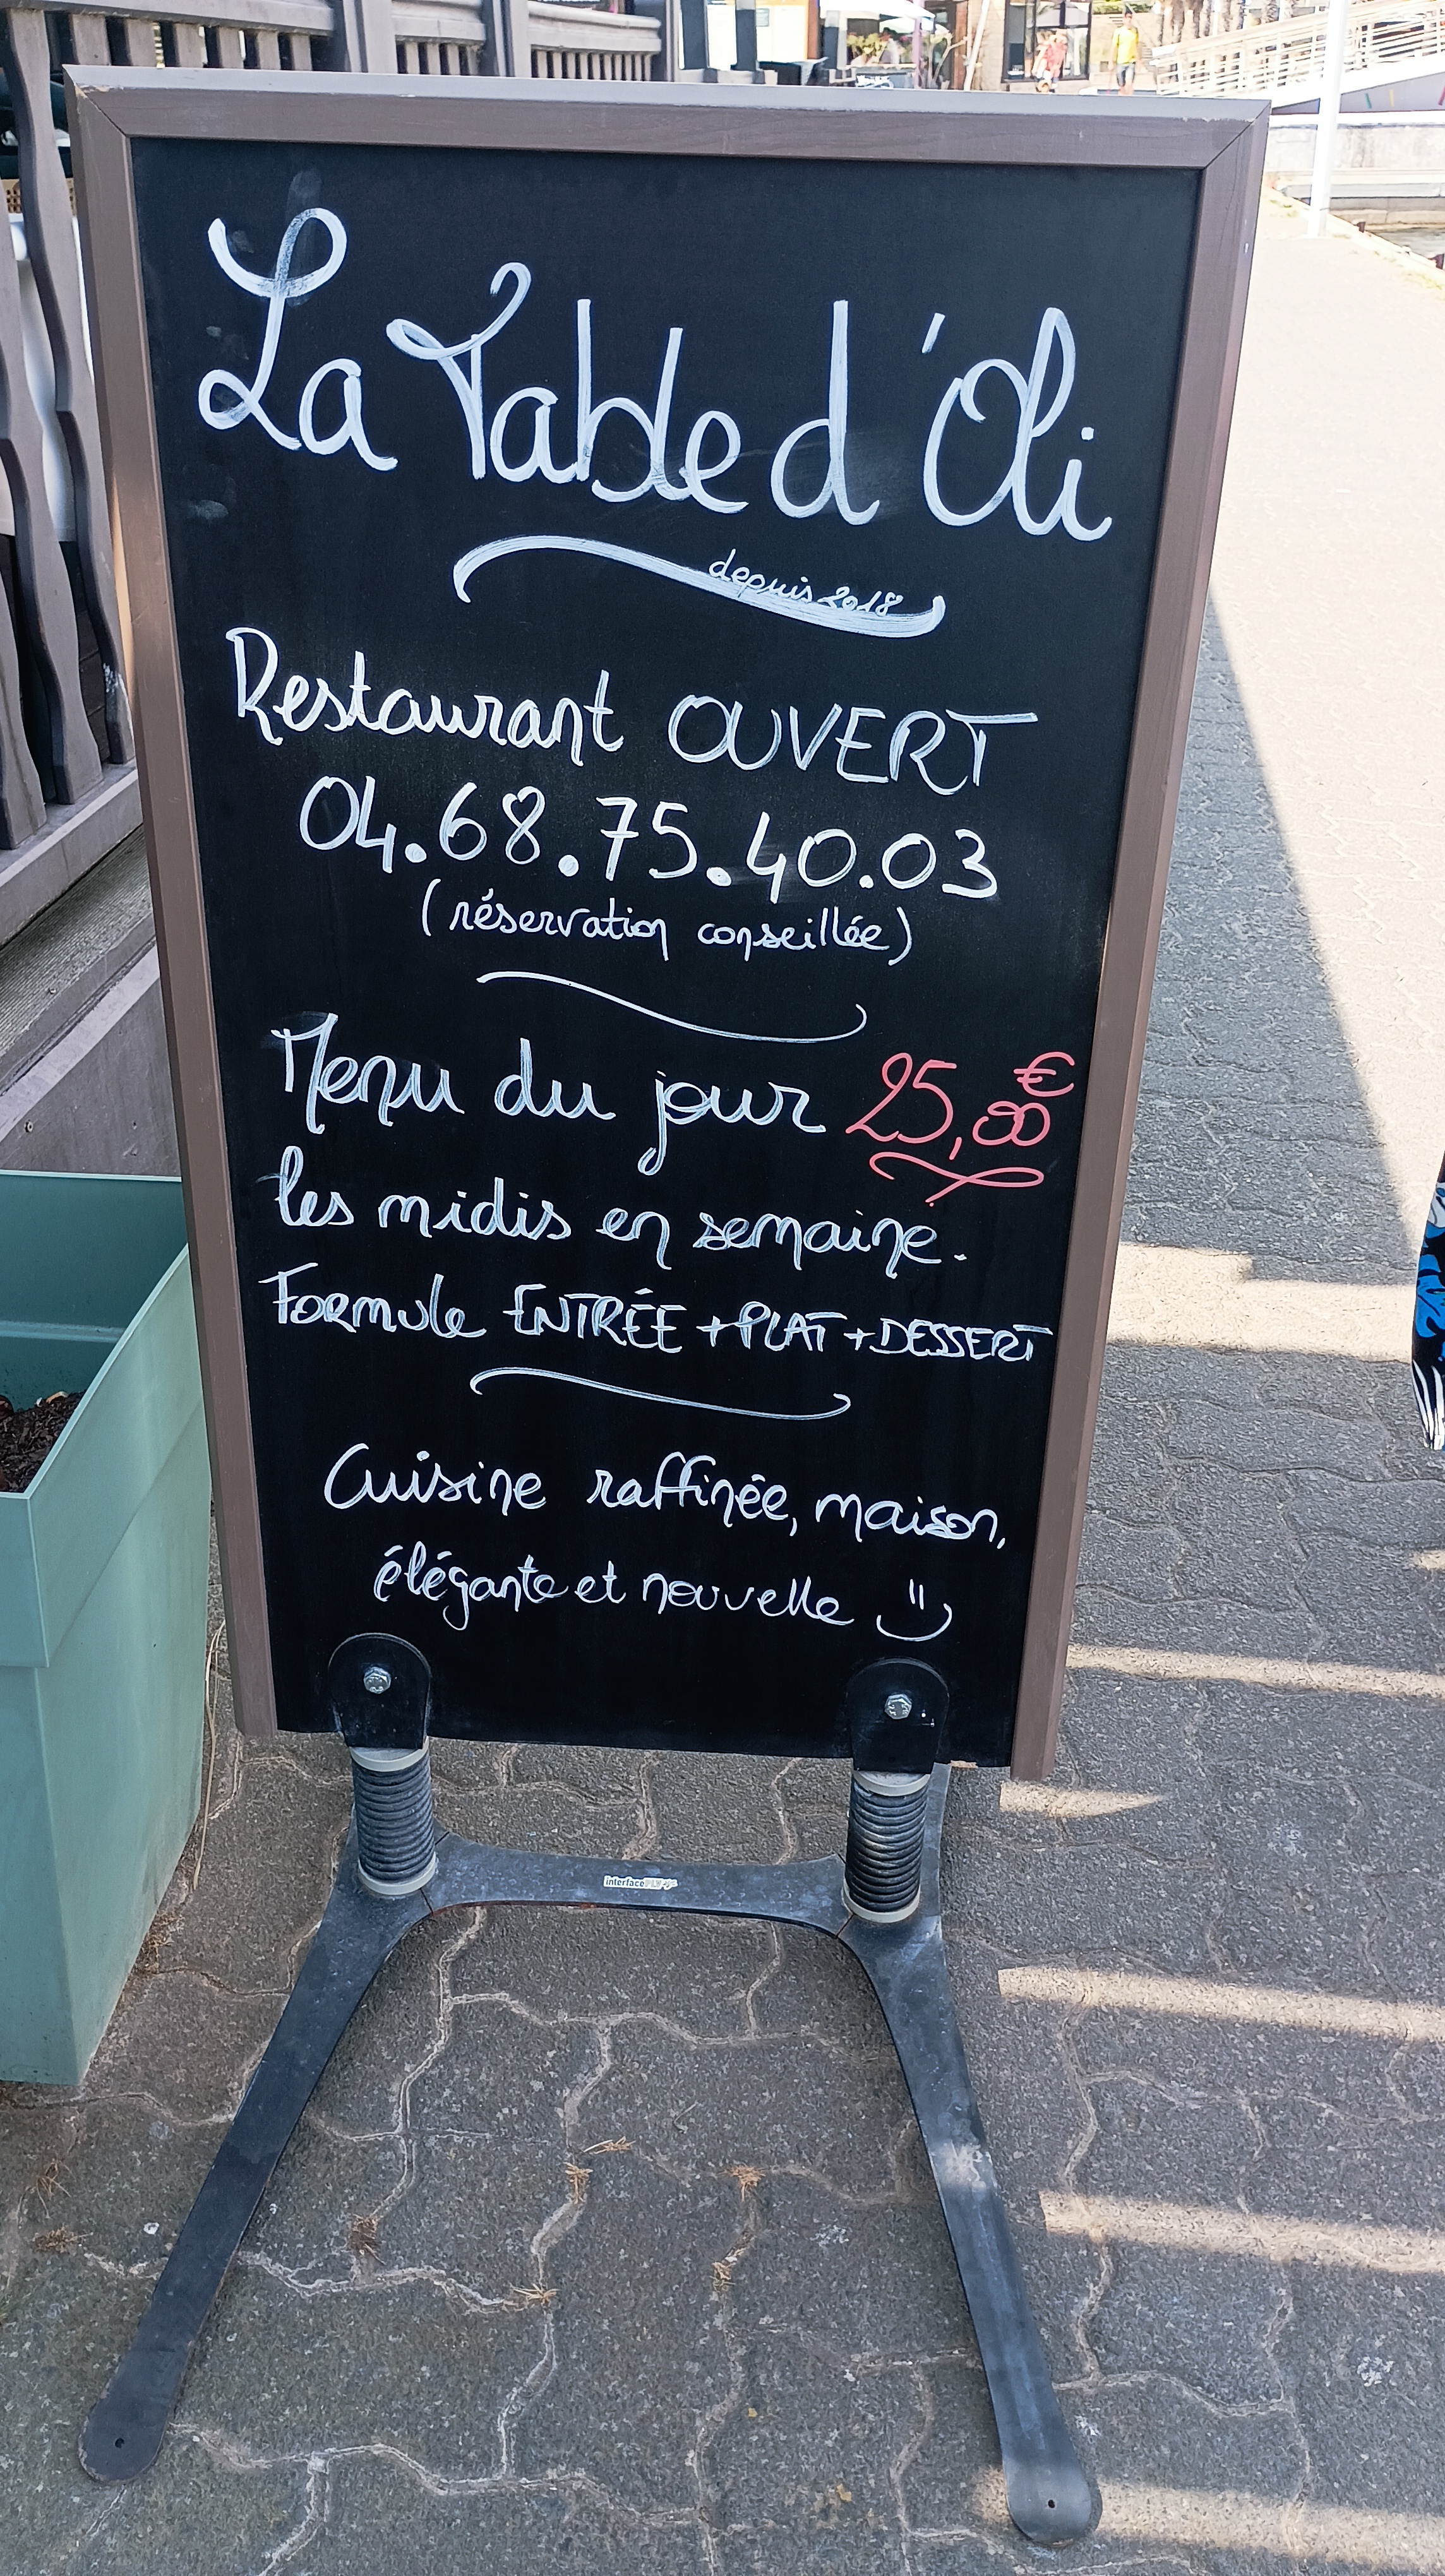 La Table d'Oli
depuis 2018
Restaurant OUVERT
04.68.75.40.03
(réservation conseillée)
Menu du jour 25,00€
les midis en semaine.
Formule ENTRÉE + PLAT + DESSERT
Cuisine raffinée, maison,
élégante et nouvelle
interfacePLV